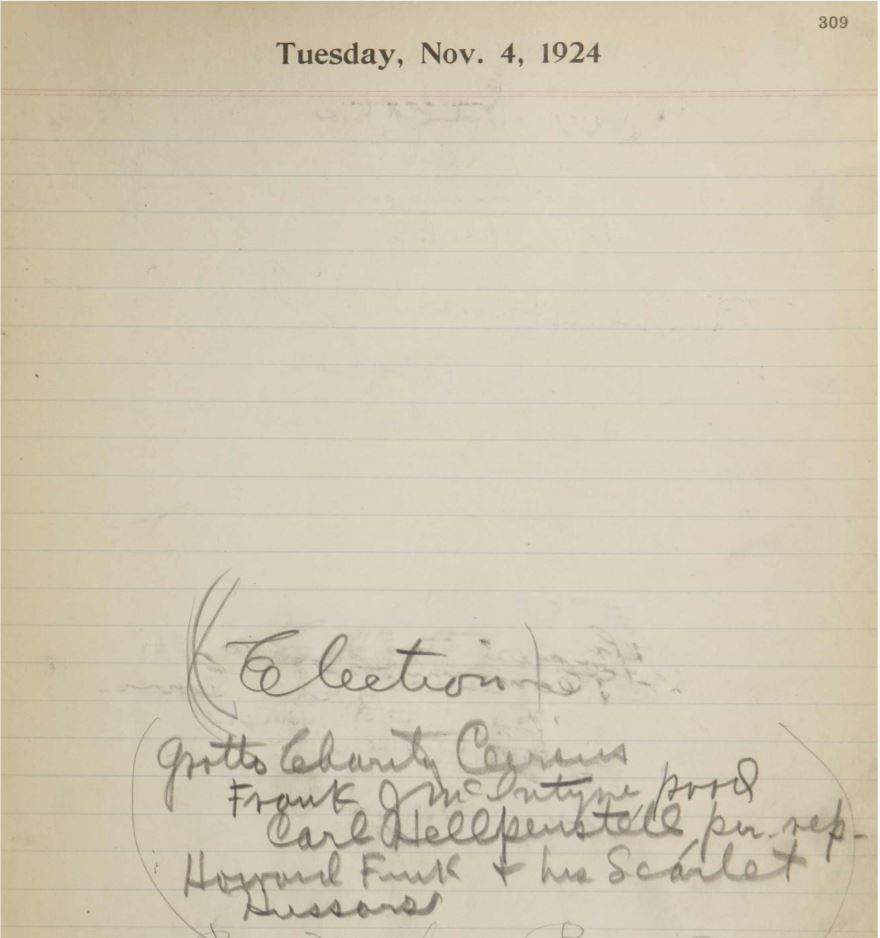 309
Tuesday, Nov. 4, 1924
(Election)
Grotto Charity Circus
Frank J McIntyre prod
Carl Hellpenstell per. rep-
Howard Fink & his Scarlet
Hussars